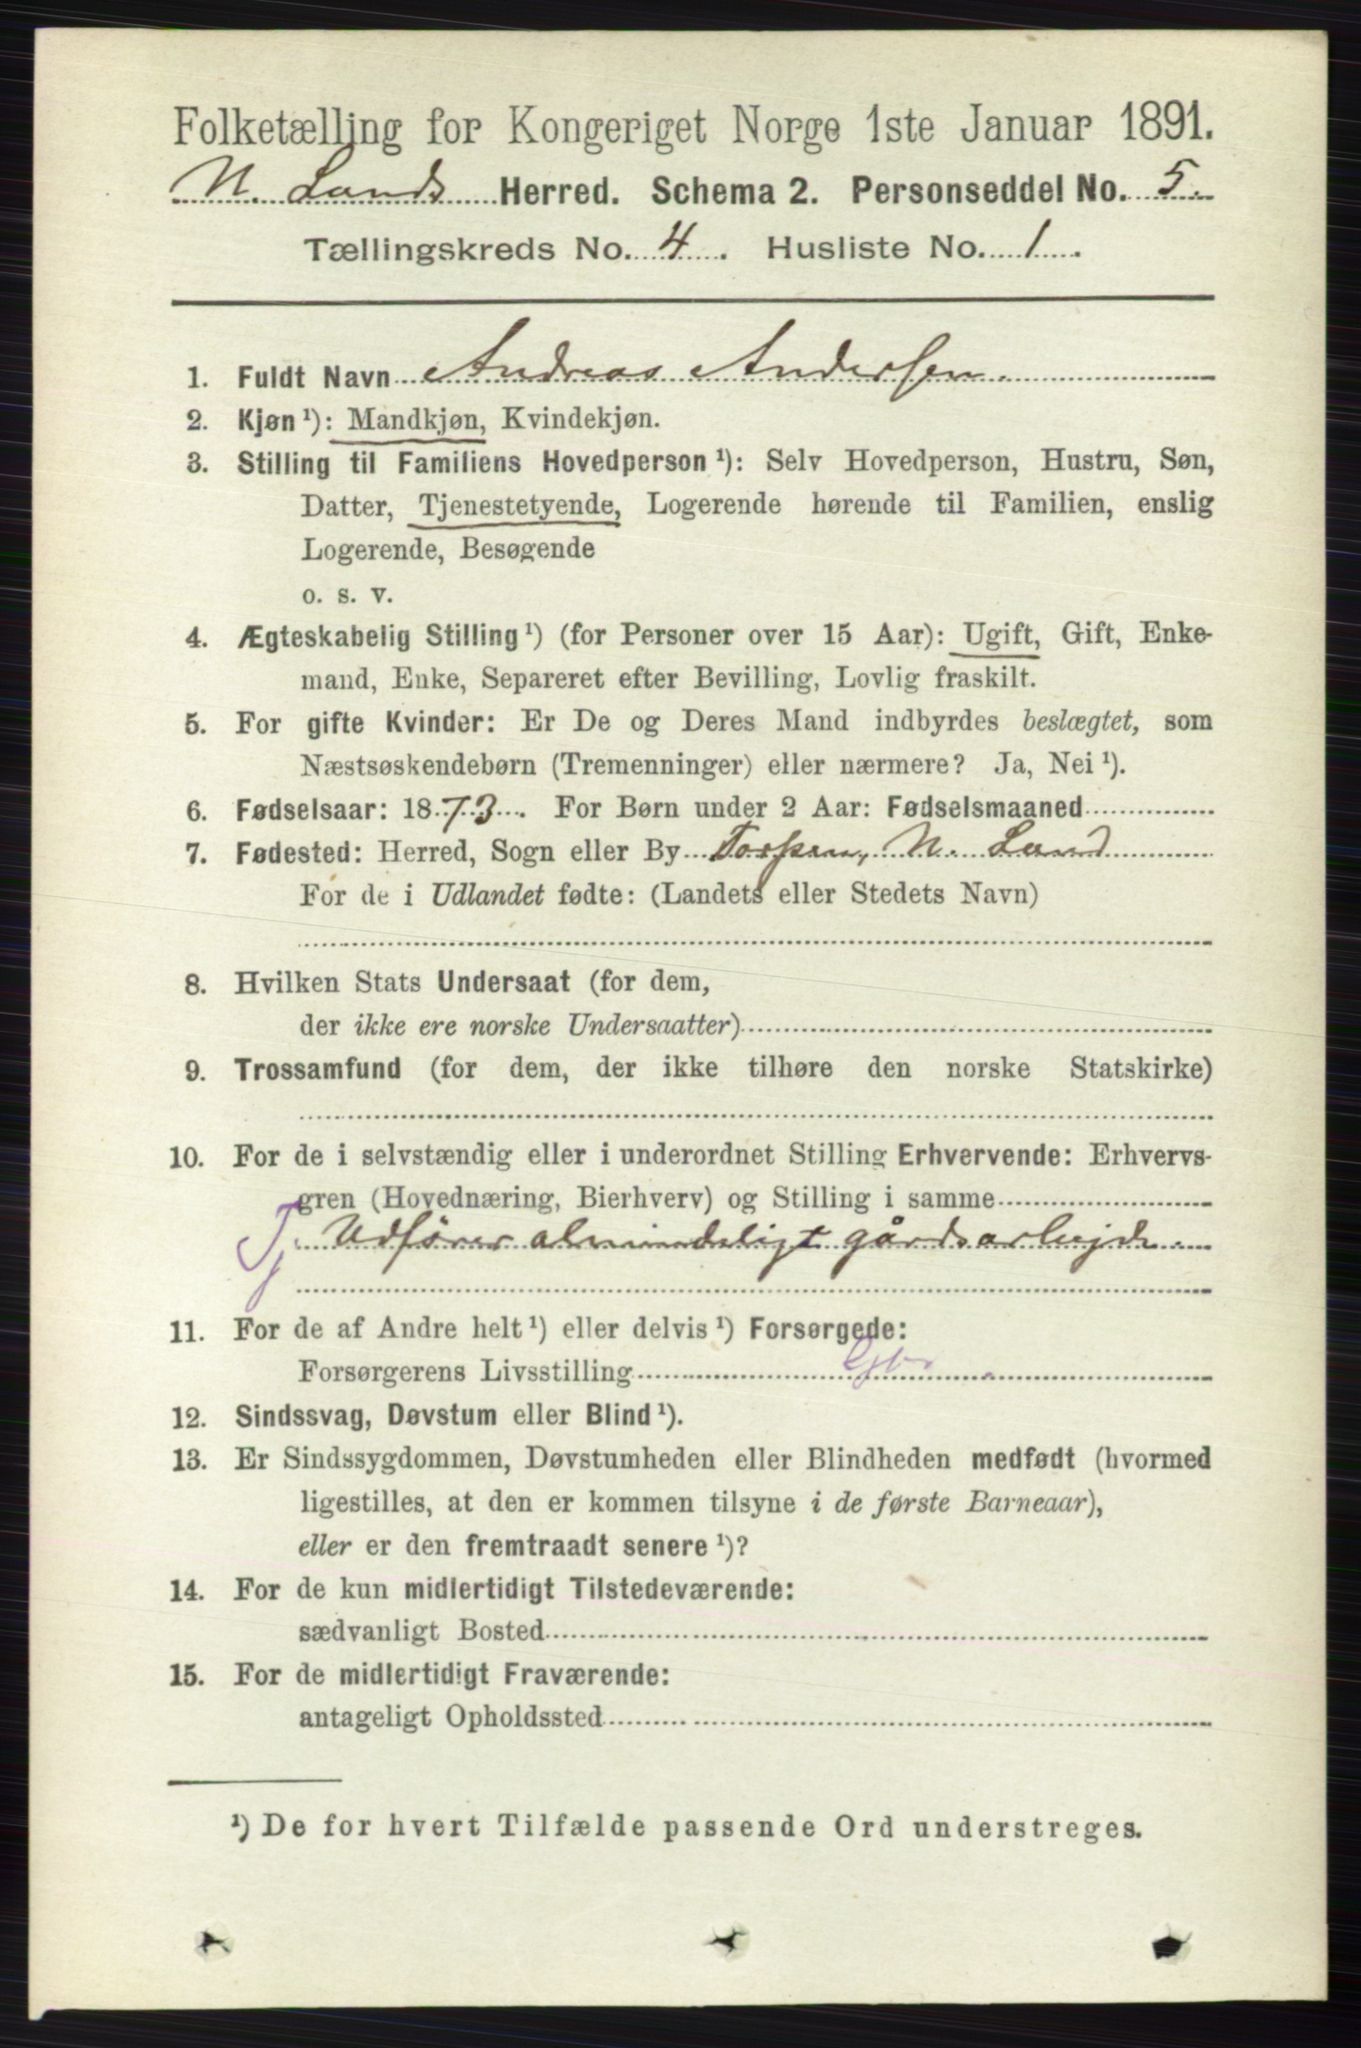 Folketælling for Kongeriget Norge 1ste Januar 1891.
N. Lands Herred. Schema 2. Personseddel No. 5.
Tællingskreds No. 4. Husliste No. 1.
1. Fuldt Navn Andreas Andersen.
2. Kjøn ¹): Mandkjøn, Kvindekjøn.
3. Stilling til Familiens Hovedperson ¹): Selv Hovedperson, Hustru, Søn,
Datter, Tjenestetyende, Logerende hørende til Familien, enslig
Logerende, Besøgende
o. s. v.
4. Ægteskabelig Stilling ¹) (for Personer over 15 Aar): Ugift, Gift, Enke-
mand, Enke, Separeret efter Bevilling, Lovlig fraskilt.
5. For gifte Kvinder: Er De og Deres Mand indbyrdes beslægtet, som
Næstsøskendebørn (Tremenninger) eller nærmere? Ja, Nei ¹).
6. Fødselsaar: 1873. For Børn under 2 Aar: Fødselsmaaned
7. Fødested: Herred, Sogn eller By Torpen, N. Land
For de i Udlandet fødte: (Landets eller Stedets Navn)
8. Hvilken Stats Undersaat (for dem,
der ikke ere norske Undersaatter)
9. Trossamfund (for dem, der ikke tilhøre den norske Statskirke)
10. For de i selvstændig eller i underordnet Stilling Erhvervende: Erhvervs-
gren (Hovednæring, Bierhverv) og Stilling i samme
Tj. Udfører almindeligt gårdsarbejde.
11. For de af Andre helt ¹) eller delvis ¹) Forsørgede:
Forsørgerens Livsstilling Gbr.
12. Sindssvag, Døvstum eller Blind ¹).
13. Er Sindssygdommen, Døvstumheden eller Blindheden medfødt (hvormed
ligestilles, at den er kommen tilsyne i de første Barneaar),
eller er den fremtraadt senere ¹)?
14. For de kun midlertidigt Tilstedeværende:
sædvanligt Bosted
15. For de midlertidigt Fraværende:
antageligt Opholdssted
¹) De for hvert Tilfælde passende Ord understreges.